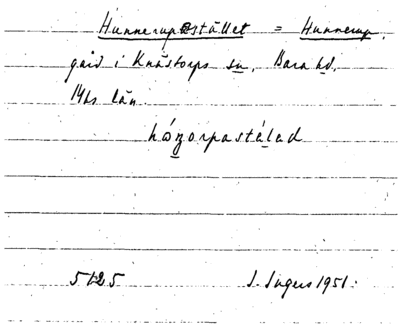 Hunnerupastället = Hunnerup,
gård i Knästorps sn, Bara hd,
Mhs län.
hó̱norpastá̱lad
5125 S. Ingers 1951.